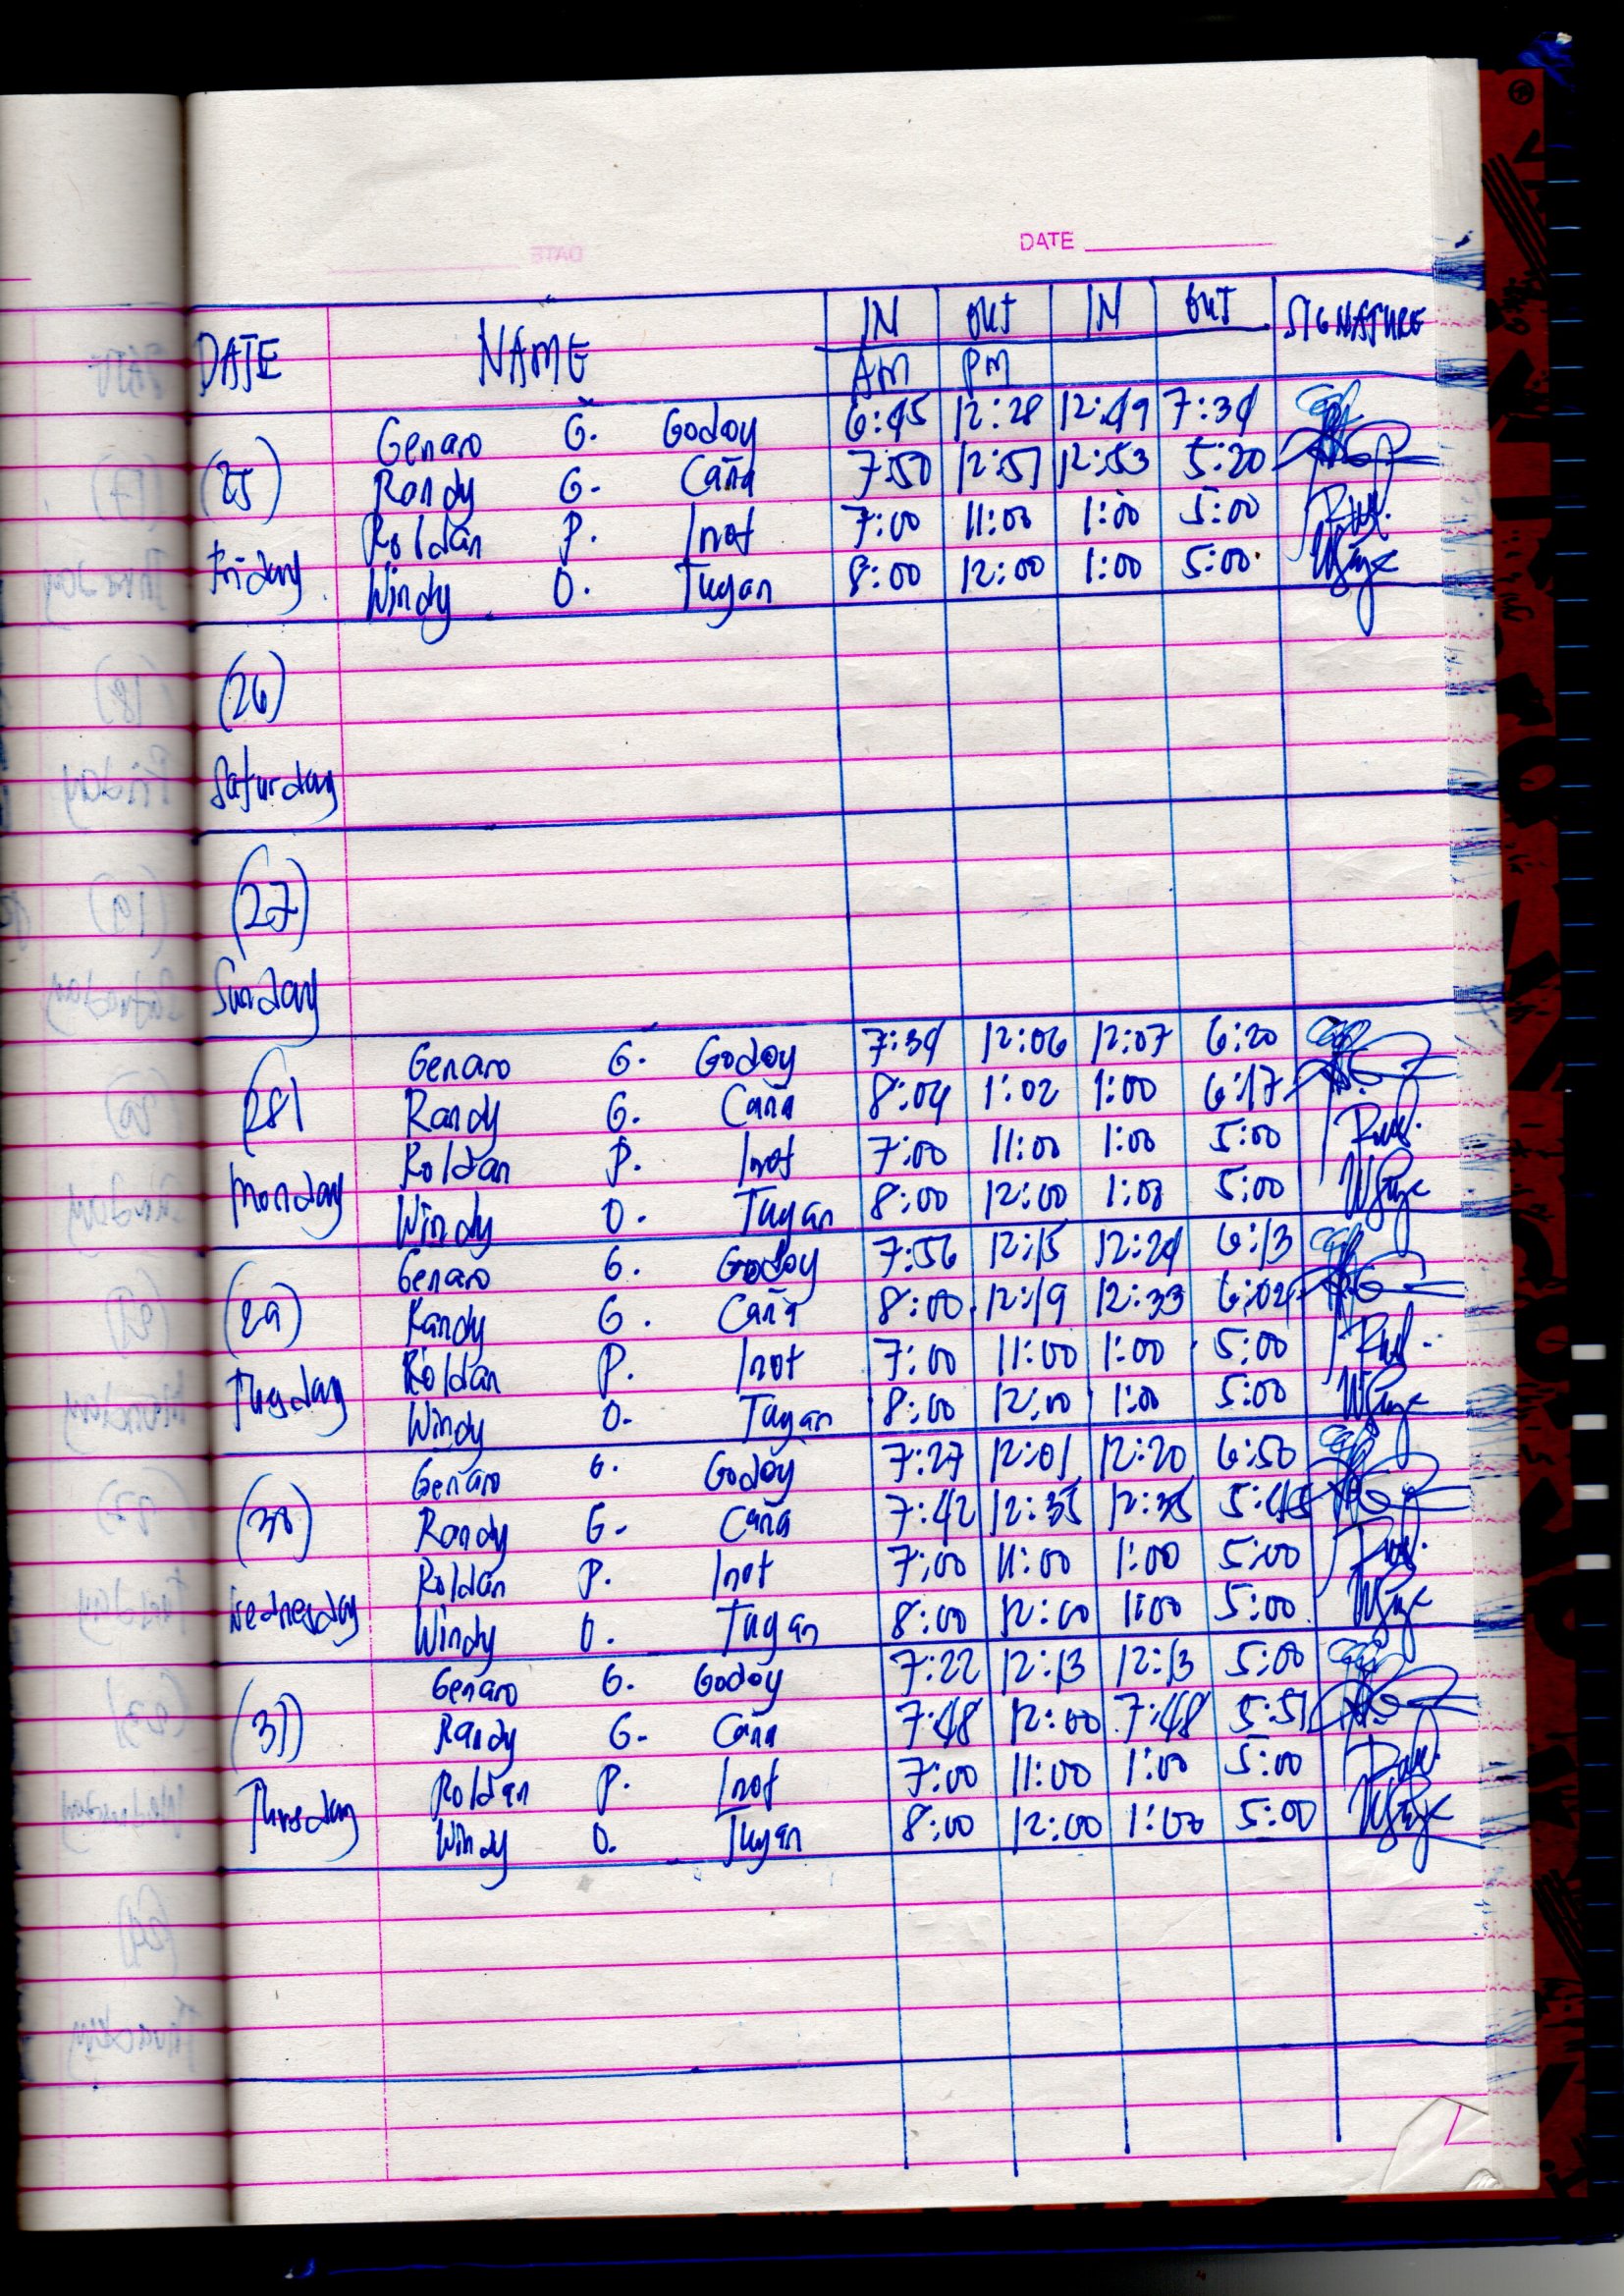 DATE
DATE NAME IN OUT IN OUT SIGNATURE
AM PM
(25) Friday
Genaro G. Godoy 6:45 12:28 12:49 7:34
Randy G. Caña 7:50 12:51 12:53 5:20
Roldan P. Inot 7:00 11:00 1:00 5:00
Windy O. Tugan 8:00 12:00 1:00 5:00
(26)
Saturday
(27)
Sunday
(28) Monday
Genaro G. Godoy 7:34 12:06 12:07 6:20
Randy G. Caña 8:04 1:02 1:00 6:17
Roldan P. Inot 7:00 11:00 1:00 5:00
Windy O. Tugan 8:00 12:00 1:00 5:00
(29) Tuesday
Genaro G. Godoy 7:56 12:15 12:24 6:13
Randy G. Caña 8:00 12:19 12:33 6:04
Roldan P. Inot 7:00 11:00 1:00 5:00
Windy O. Tugan 8:00 12:00 1:00 5:00
(30) Wednesday
Genaro G. Godoy 7:27 12:01 12:20 6:50
Randy G. Caña 7:42 12:35 12:35 5:45
Roldan P. Inot 7:00 11:00 1:00 5:00
Windy O. Tugan 8:00 12:00 1:00 5:00
(31) Thursday
Genaro G. Godoy 7:22 12:13 12:13 5:00
Randy G. Caña 7:48 12:00 7:48 5:51
Roldan P. Inot 7:00 11:00 1:00 5:00
Windy O. Tugan 8:00 12:00 1:00 5:00